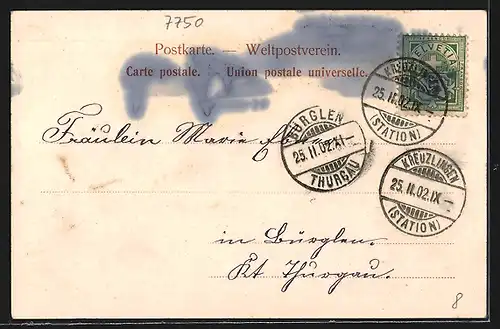 7750
Postkarte. — Weltpostverein.
Carte postale. Union postale universelle.
HELVETIA
KREUZLINGEN
25.II.02.IX
(STATION)
BÜRGLEN
25.II.02.XI
THURGAU
Fräulein Marie
KREUZLINGEN
25.II.02.IX
(STATION)
in Bürglen.
Kt Thurgau.
8